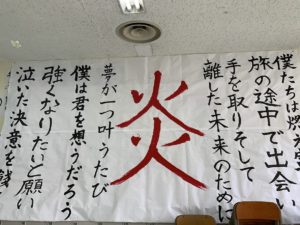 僕たちは燃え
旅の途中で出会い
手を取りそして
離した未来のために
炎
夢が一つ叶うたび
僕は君を想うだろう
強くなりたいと願い
泣いた決意を餞